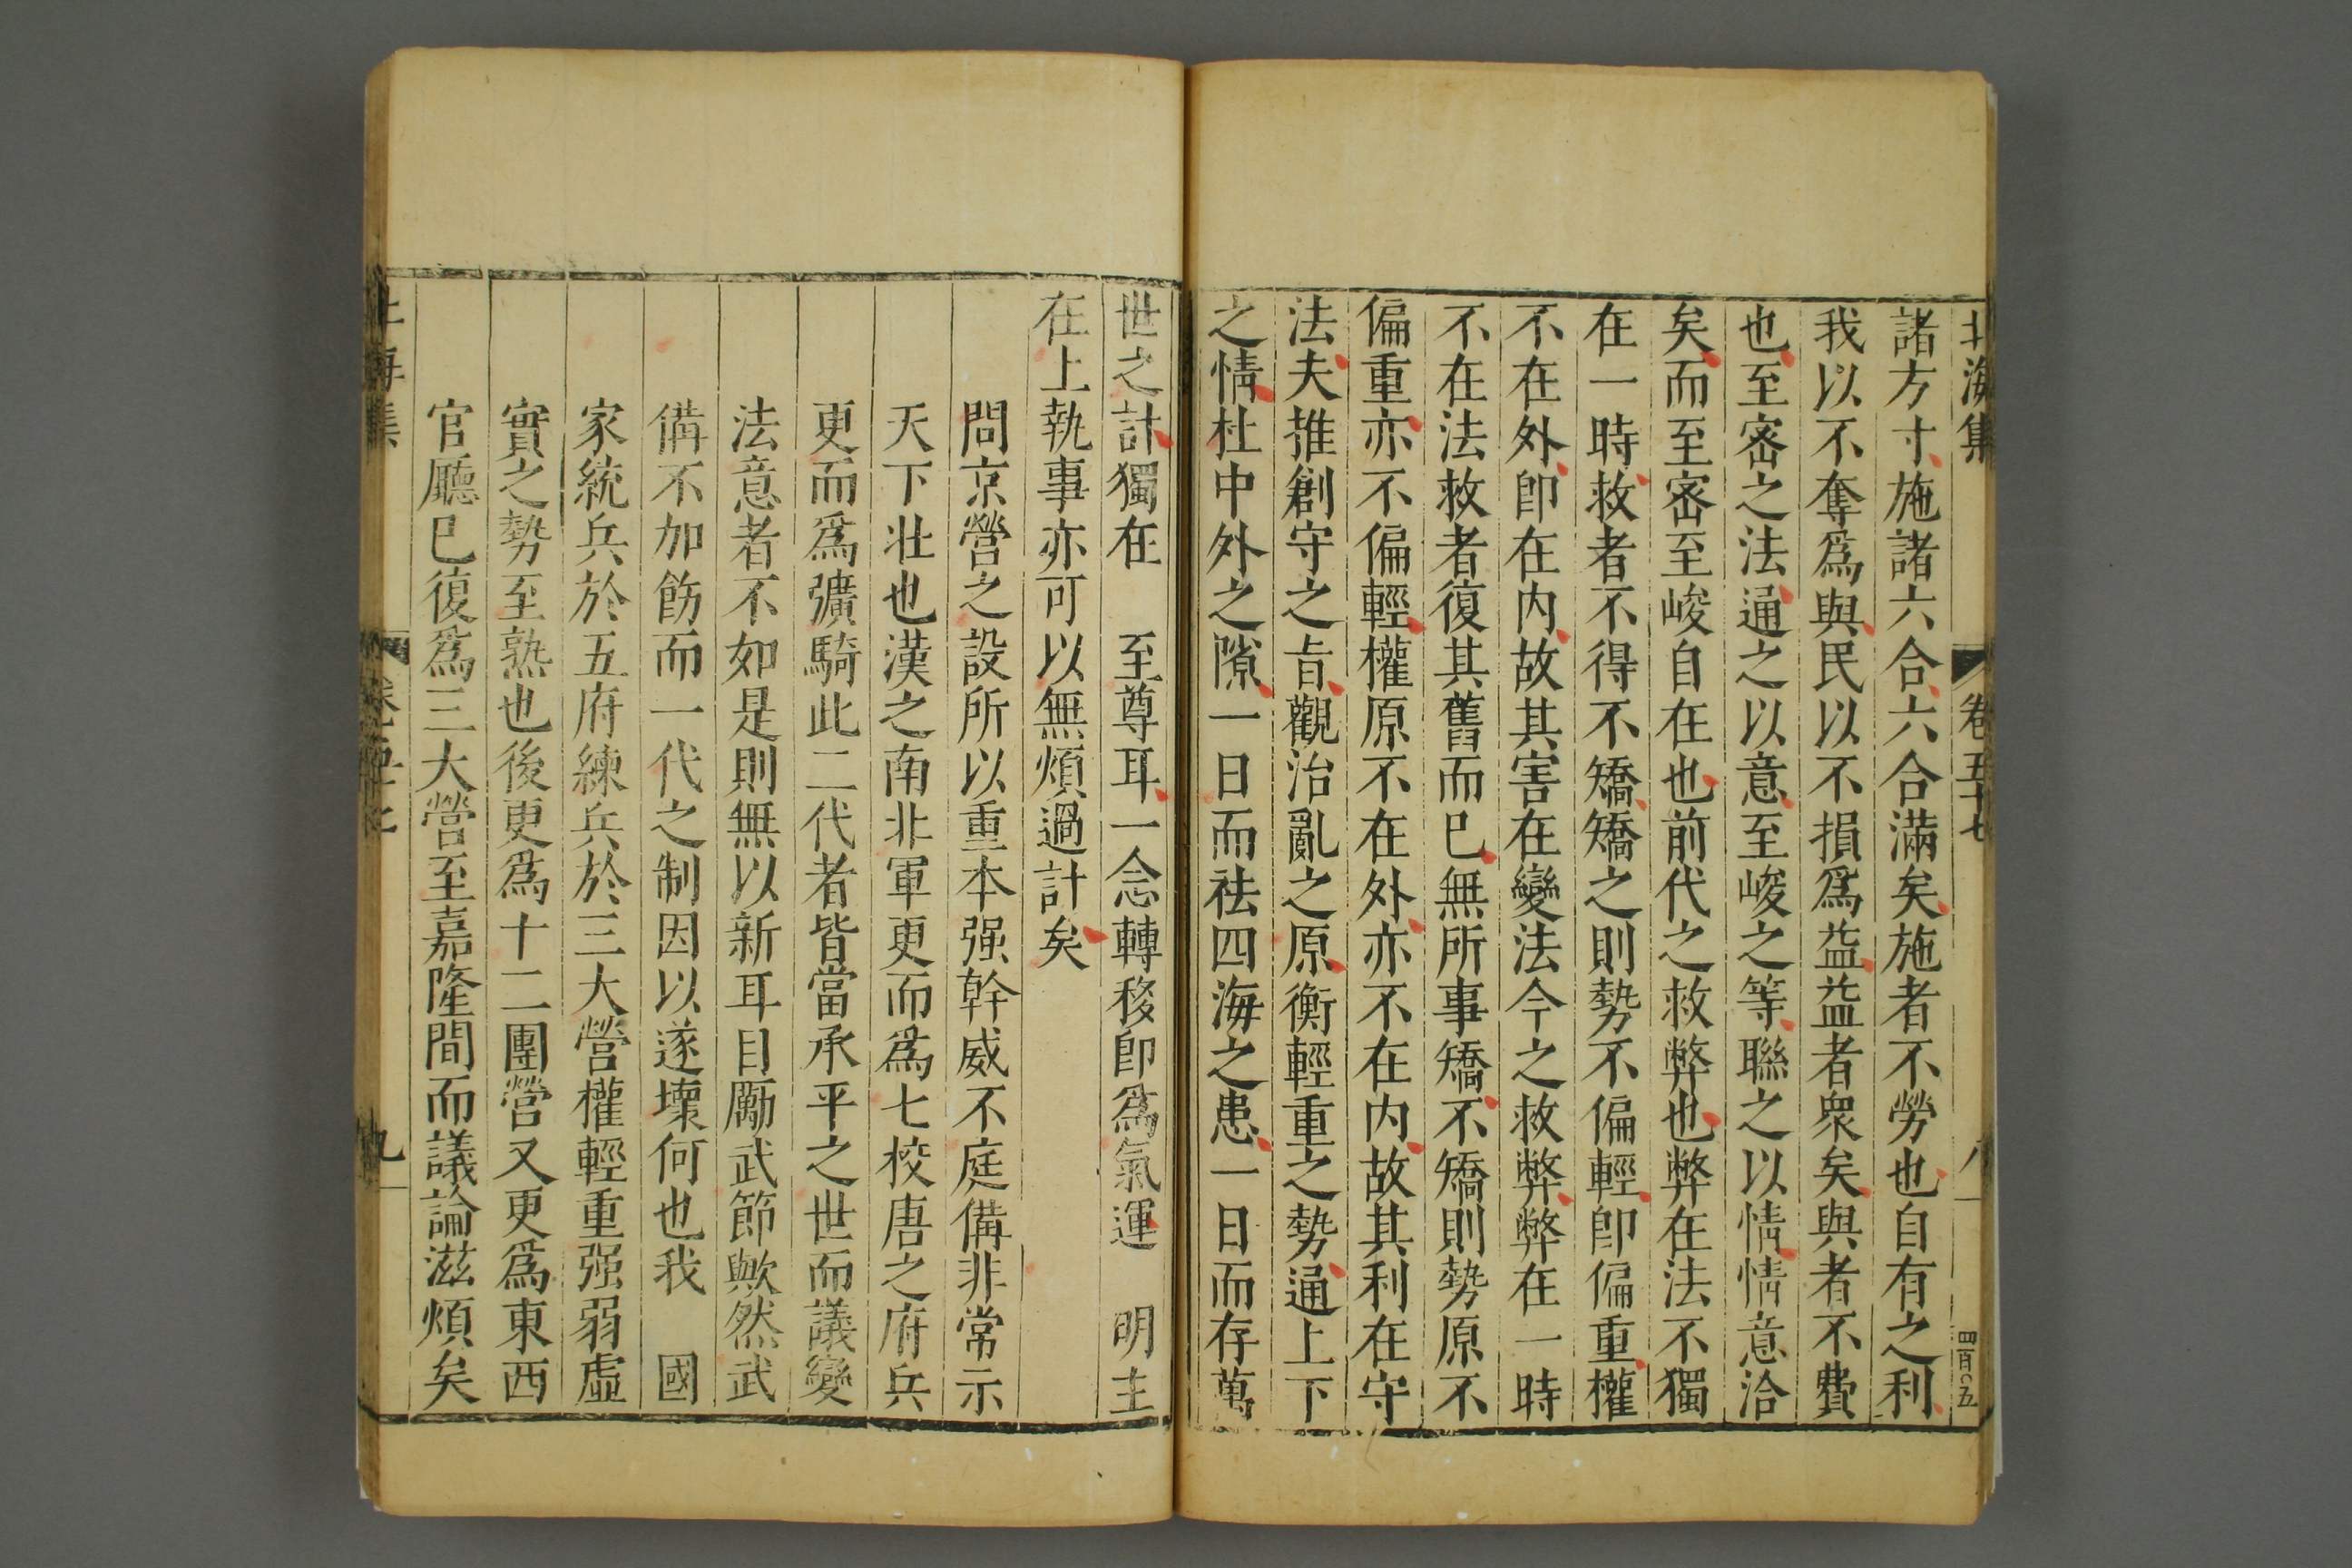 北海集 卷五十七 八 四百〇五
諸方寸施諸六合六合滿矣施者不勞也自有之利
我以不奪爲與民以不損爲益益者衆矣與者不費
也至密之法通之以意至峻之等聯之以情情意洽
矣而至密至峻自在也前代之救弊也弊在法不獨
在一時救者不得不矯矯之則勢不偏輕卽偏重權
不在外卽在內故其害在變法今之救弊弊在一時
不在法救者復其舊而已無所事矯不矯則勢原不
偏重亦不偏輕權原不在外亦不在內故其利在守
法夫推創守之旨觀治亂之原衡輕重之勢通上下
之情杜中外之隙一日而祛四海之患一日而存萬
世之計獨在 至尊耳一念轉移卽爲氣運 明主
在上執事亦可以無煩過計矣
問京營之設所以重本强幹威不庭備非常示
天下壯也漢之南北軍更而爲七校唐之府兵
更而爲彍騎此二代者皆當承平之世而議變
法意者不如是則無以新耳目勵武節歟然武
備不加飭而一代之制因以遂壞何也我 國
家統兵於五府練兵於三大營權輕重强弱虛
實之勢至熟也後更爲十二團營又更爲東西
官廳已復爲三大營至嘉隆間而議論滋煩矣
北海集 九